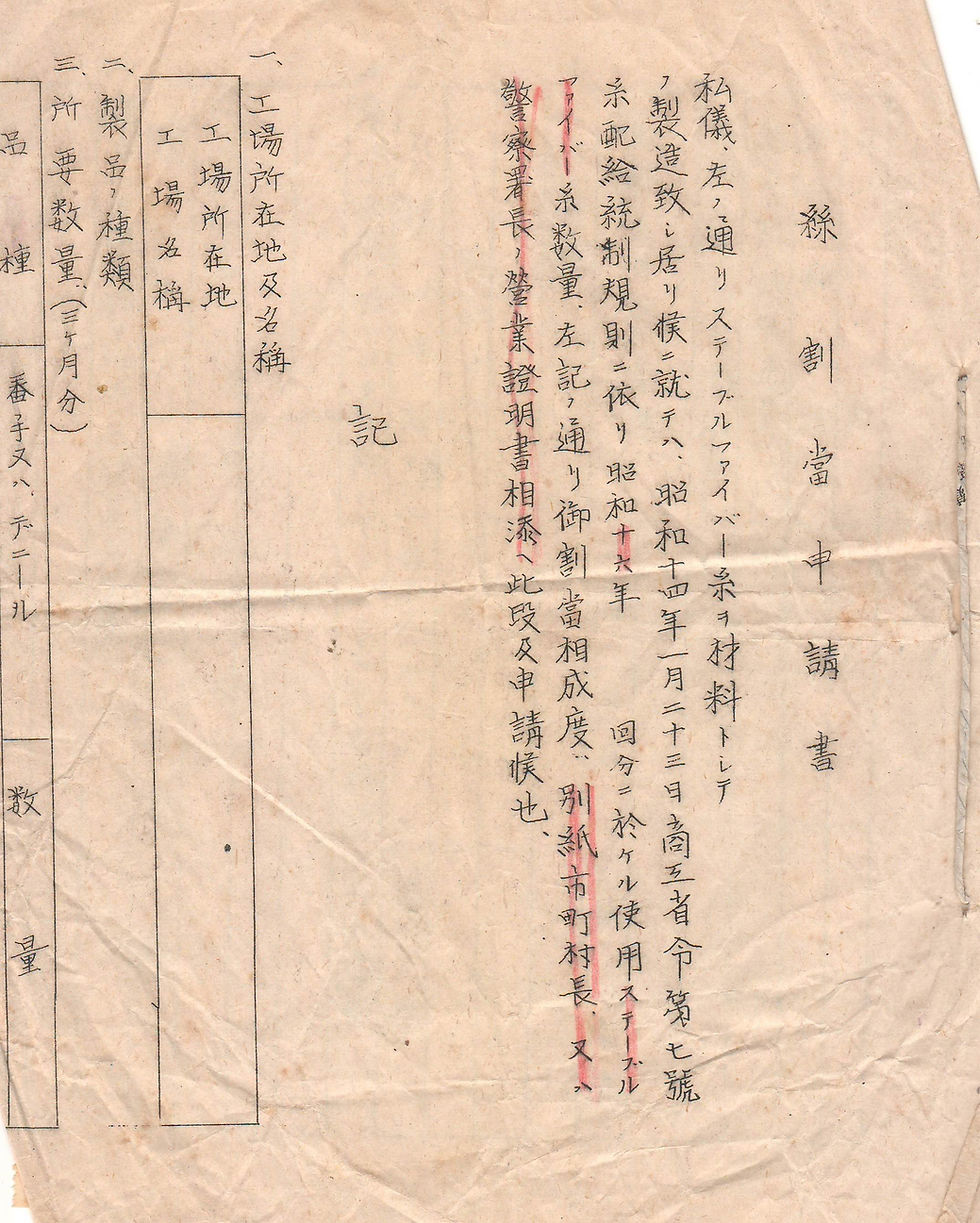 絲割當申請書
私儀、左ノ通リステープルファイバー糸ヲ材料トシテ
ノ製造致シ居リ候ニ就テハ、昭和十四年一月二十三日商工省令第七號
糸配給統制規則ニ依リ昭和十六年 回分ニ於ケル使用ステープル
ファイバー糸数量、左記ノ通リ御割當相成度、別紙市町村長、又ハ
警察署長ノ營業證明書相添ヘ此段及申請候也、
記
一、工場所在地及名稱
工場所在地
工場名稱
二、製品ノ種類
三、所要数量、(三ヶ月分)
品種
番手又ハ、デニール
数量